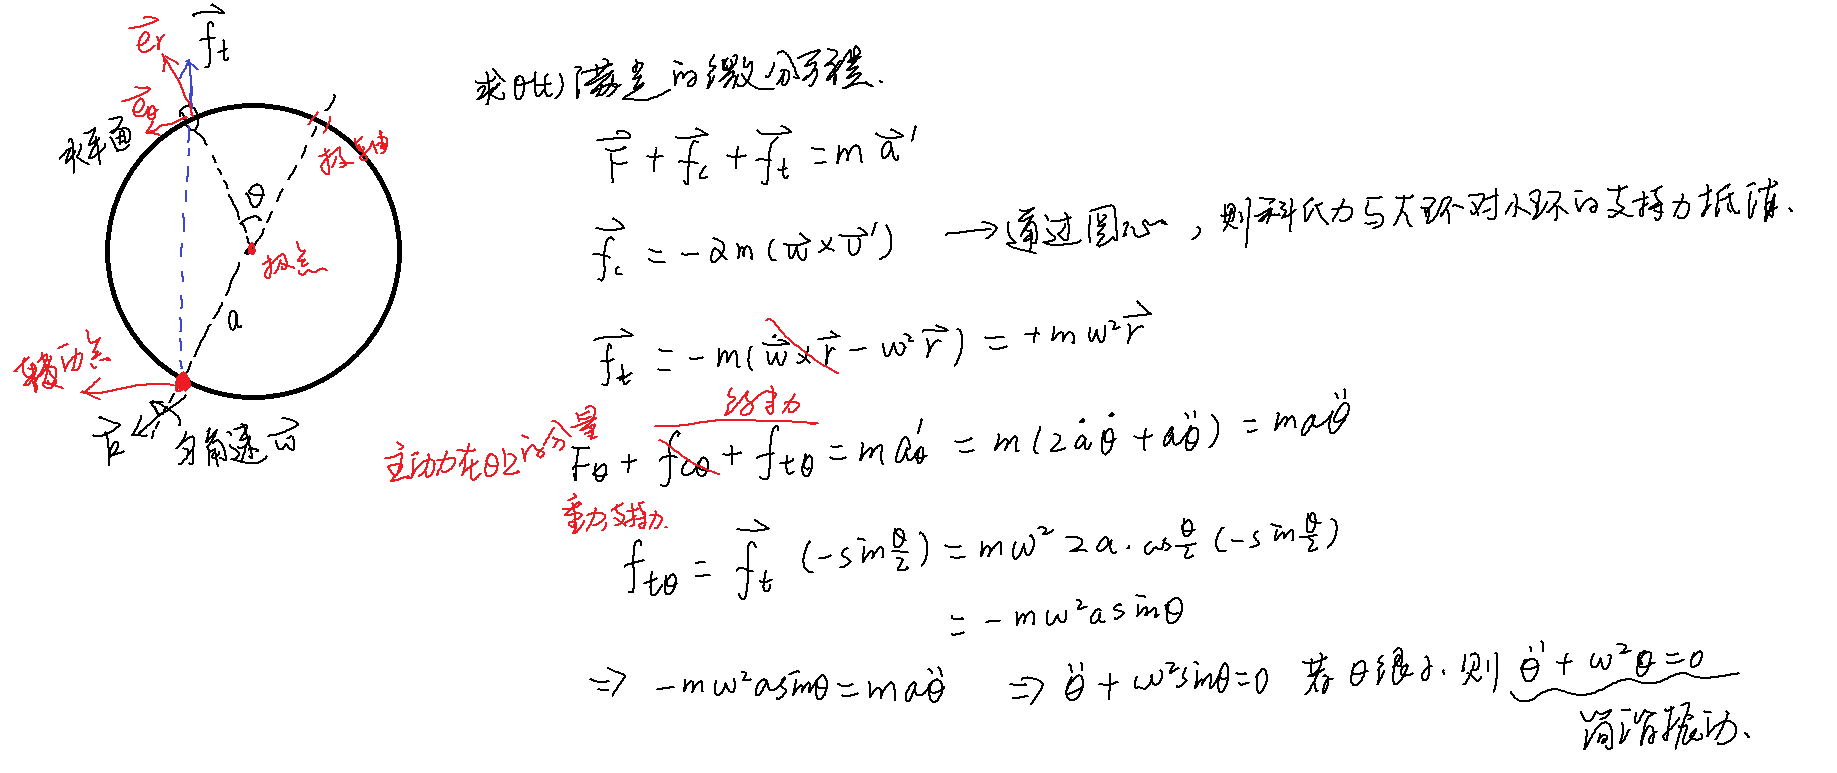 $\vec{e_r}$ $\vec{f_t}$
$\vec{e_\theta}$
水平面
极轴
θ
极点
a
转动点
$\vec{k}$ 匀角速 $\vec{\omega}$
求θ(t)满足的微分方程.
$\vec{F} + \vec{f_c} + \vec{f_t} = m\vec{a}'$
$\vec{f_c} = -2m(\vec{\omega} \times \vec{v}')$ → 通过圆心, 则科氏力与大环对小环的支持力抵消.
$\vec{f_t} = -m(\dot{\vec{\omega}} \times \vec{r} - \omega^2 \vec{r}) = +m\omega^2 \vec{r}$
约束力
主动力在θ上的分量
$F_\theta + f_{c\theta} + f_{t\theta} = ma'_\theta = m(2\dot{a}\dot{\theta} + a\ddot{\theta}) = ma\ddot{\theta}$
重力,支持力.
$f_{t\theta} = \vec{f_t} (-\sin\frac{\theta}{2}) = m\omega^2 2a \cdot \cos\frac{\theta}{2} (-\sin\frac{\theta}{2})$
$= -m\omega^2 a \sin\theta$
⇒ $-m\omega^2 a\sin\theta = ma\ddot{\theta}$ ⇒ $\ddot{\theta} + \omega^2 \sin\theta = 0$ 若θ很小, 则 $\ddot{\theta} + \omega^2\theta = 0$
简谐振动.